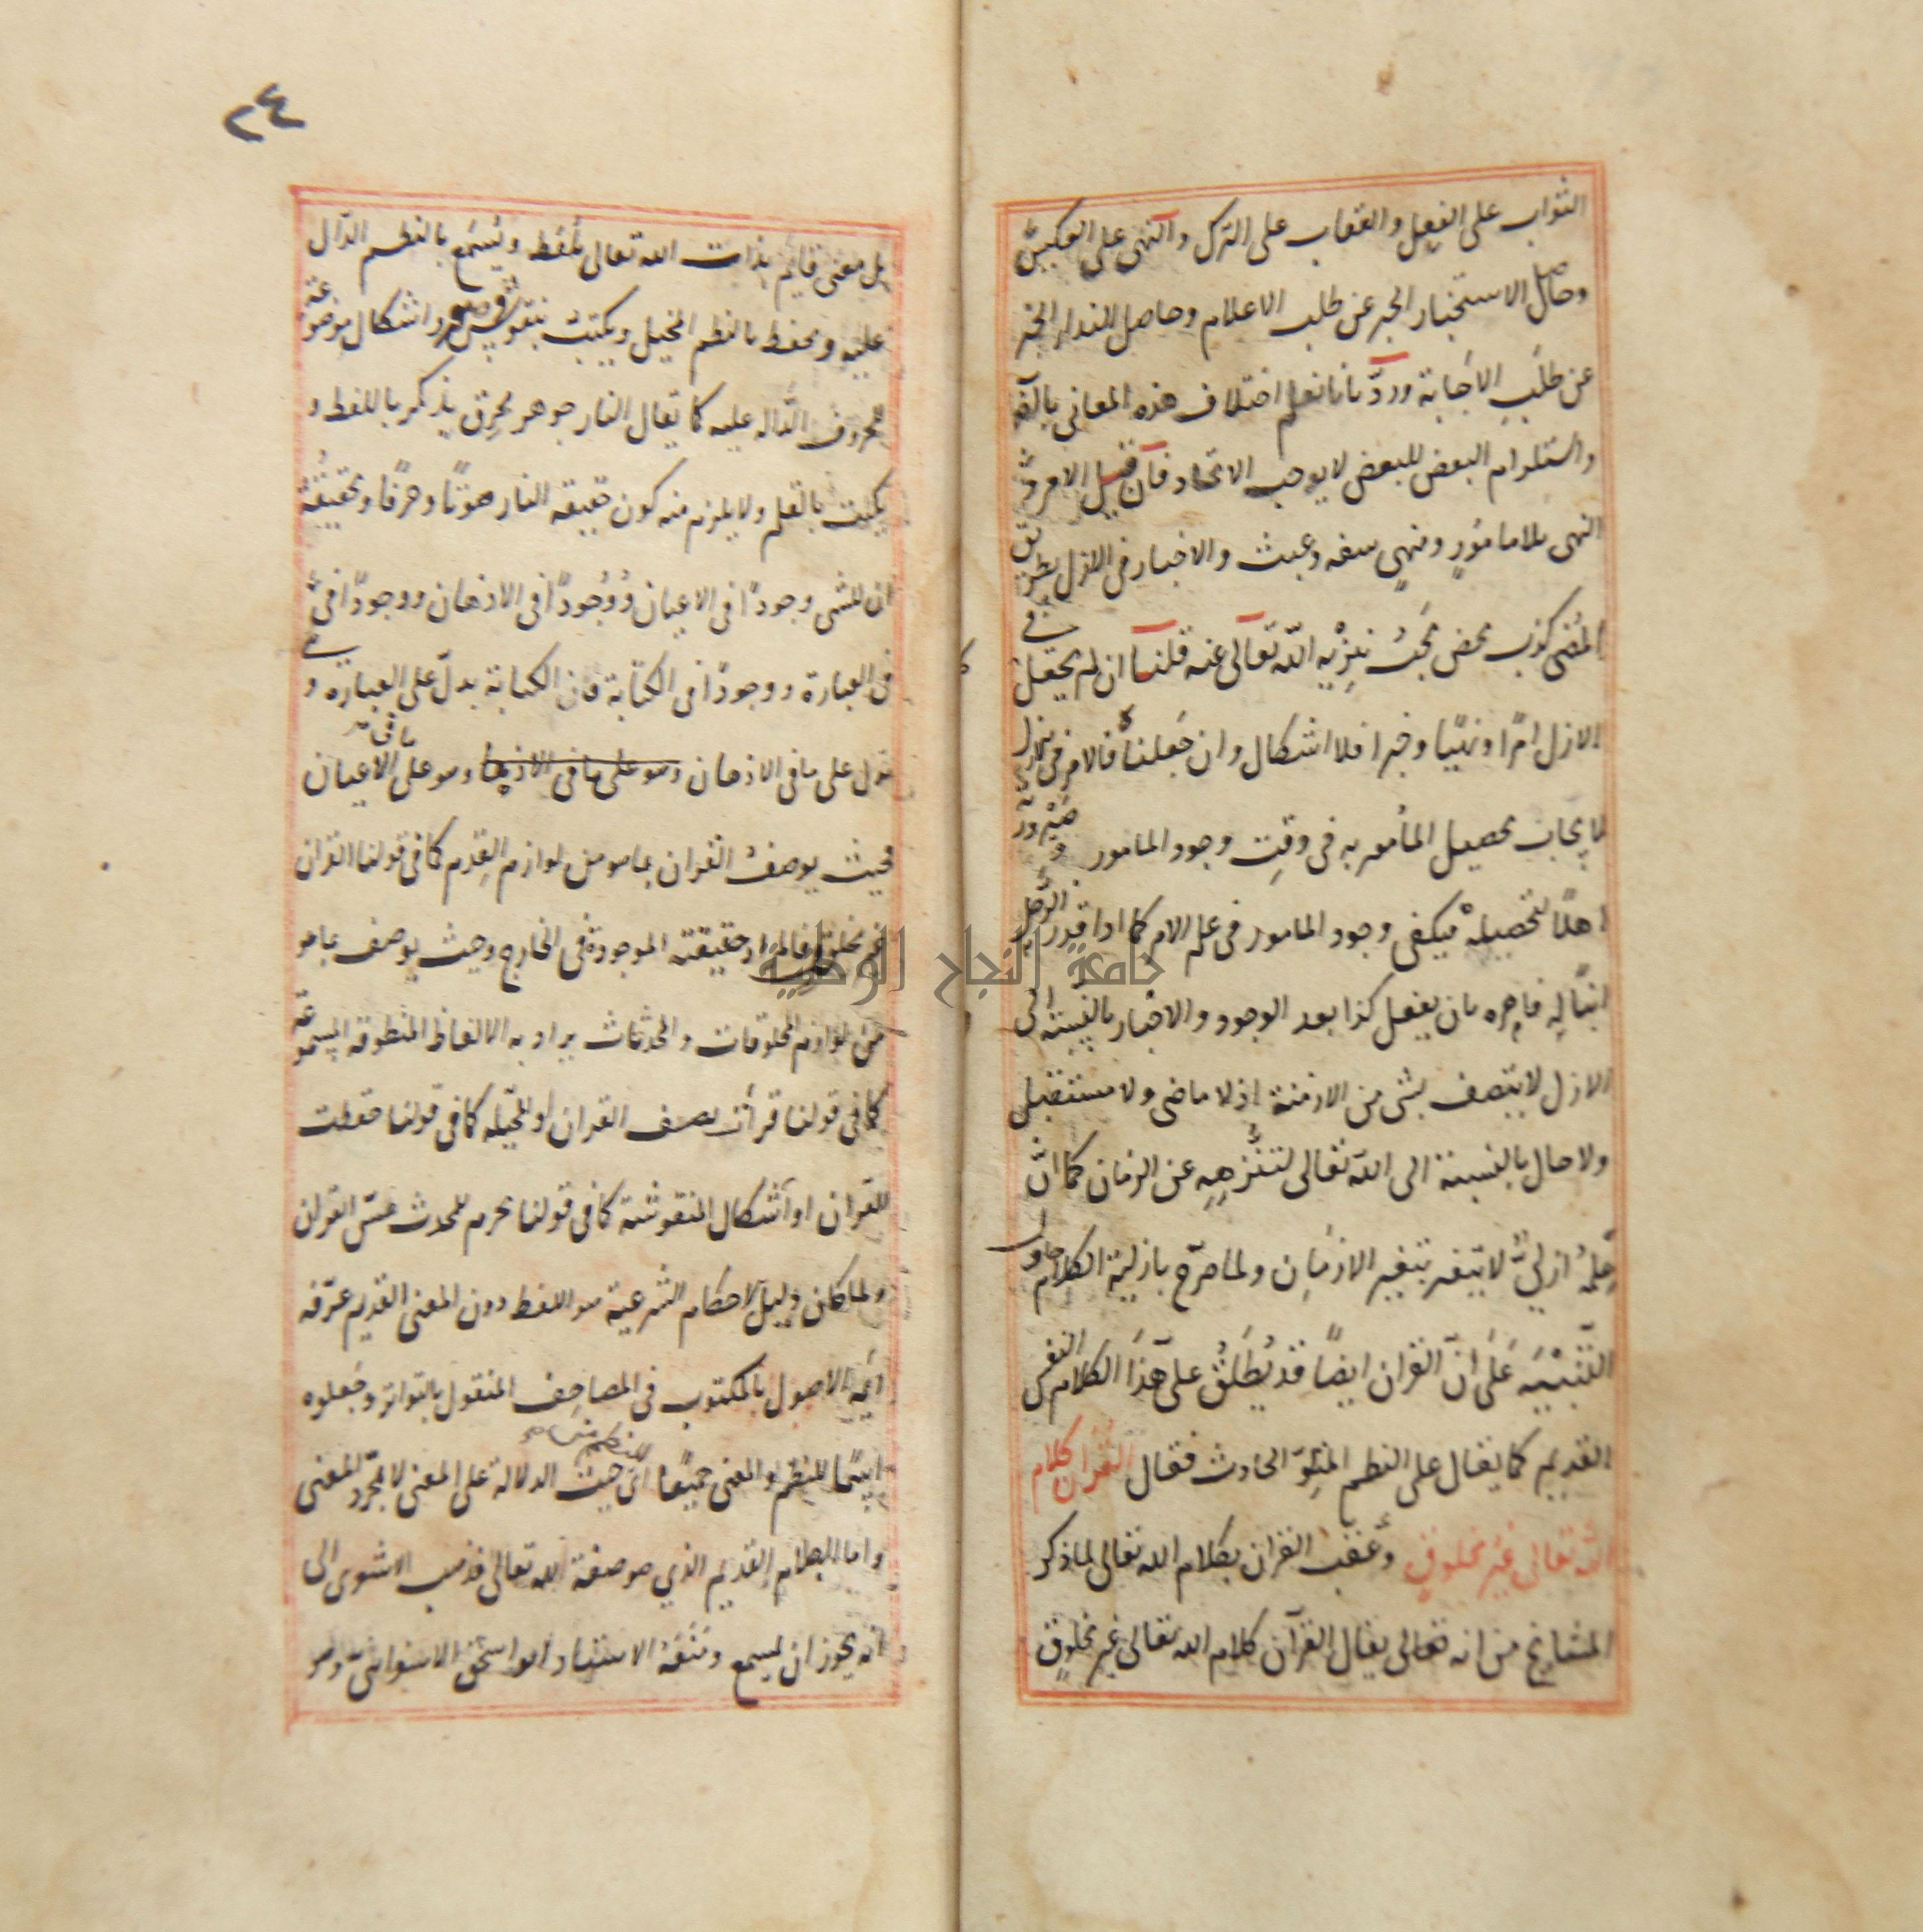 الثواب على الفعل والعقاب على الترك والنهى على العكس
وحاصل الاستخبار الخبر عن طلب الاعلام وحاصل النداء الخبر
عن طلب الاجابة وردّ بانا نعلم اختلاف هذه المعانى بالضر
واستلزام البعض للبعض لا يوجب الاتحاد فان قيل الامر و
النهى بلا مامور ومنهى سفه وعبث والاخبار فى الازل بطريق
المضى كذب محض يجب تنزيه الله تعالى عنه قلنا ان لم يجعل فى
الازل امرا ونهيا وخبرا فلا اشكال وان جعلناه فالامر فى الازل
لايجاب تحصيل المأمور به فى وقت وجود المامور وصيرورته
اهلا لتحصيله فيكفى وجود المامور فى علم الامر كما اذا قدر الرجل
ابنا له فامره بان يفعل كذا بعد الوجود والاخبار بالنسبة الى
الازل لا يتصف بشى من الازمنة اذ لا ماضى ولا مستقبل
ولا حال بالنسبة الى الله تعالى لتنزهه عن الزمان كما انّ
علمه ازلىّ لا يتغير بتغير الازمان ولما صرّح بازلية الكلام حاول
التنبيه على انّ القران ايضا قد يطلق على هذا الكلام النفسى
القديم كما يقال على النظم المتلوّ الحادث فقال القران كلام
الله تعالى غير مخلوق وعقب القران بكلام الله تعالى لما ذكر
المشايخ من انه تعالى يقال القرآن كلام الله تعالى غير مخلوق
٢٤
بل معنى قايم بذات الله تعالى يلفظ ويسمع بالنظم الدّال
عليه ويحفظ بالنظم المخيل ويكتب بنقوش وصور واشكال موضوعة
للحروف الدّاله عليه كما يقال النار جوهر محرق يذكر باللفظ و
يكتب بالقلم ولا يلزم منه كون حقيقه النار صوتا وحرفا وتحقيقه
ان للشى وجودا فى الاعيان ووجودا فى الاذهان ووجودا فى
فى العبارة ووجودا فى الكتابة فان الكتابة يدلّ على العباره و
على ما فى الاذهان وهو على ما فى الاذها وهو على ما فى الاعيان
فحيث يوصف القران بما هو من لوازم القدم كما فى قولنا القران
غير مخلوق فالمراد حقيقته الموجودة فى الخارج وحيث يوصف بما هو
من لوازم المخلوقات والمحدثات يراد به الالفاظ المنطوقه المسموعة
كما فى قولنا قرأت نصف القران او المخيله كما فى قولنا حفظت
القران او اشكال المنقوشة كما فى قولنا يحرم للمحدث مسّ القران
ولما كان دليل الاحكام الشرعية هو اللفظ دون المعنى القديم عرّفه
ايمة الاصول بالمكتوب فى المصاحف المنقول بالتواتر وجعلوه
اسما للنظم والمعنى جميعا اى للنظم من حيث الدلالة على المعنى لا لمجرّد المعنى
واما الكلام القديم الذي هو صفة الله تعالى فذهب الاشعرى الى
انه يجوز ان يسمع ومنعه الاستاد ابو اسحق الاسفراينىّ وهو
جامعة النجاح الوطنية